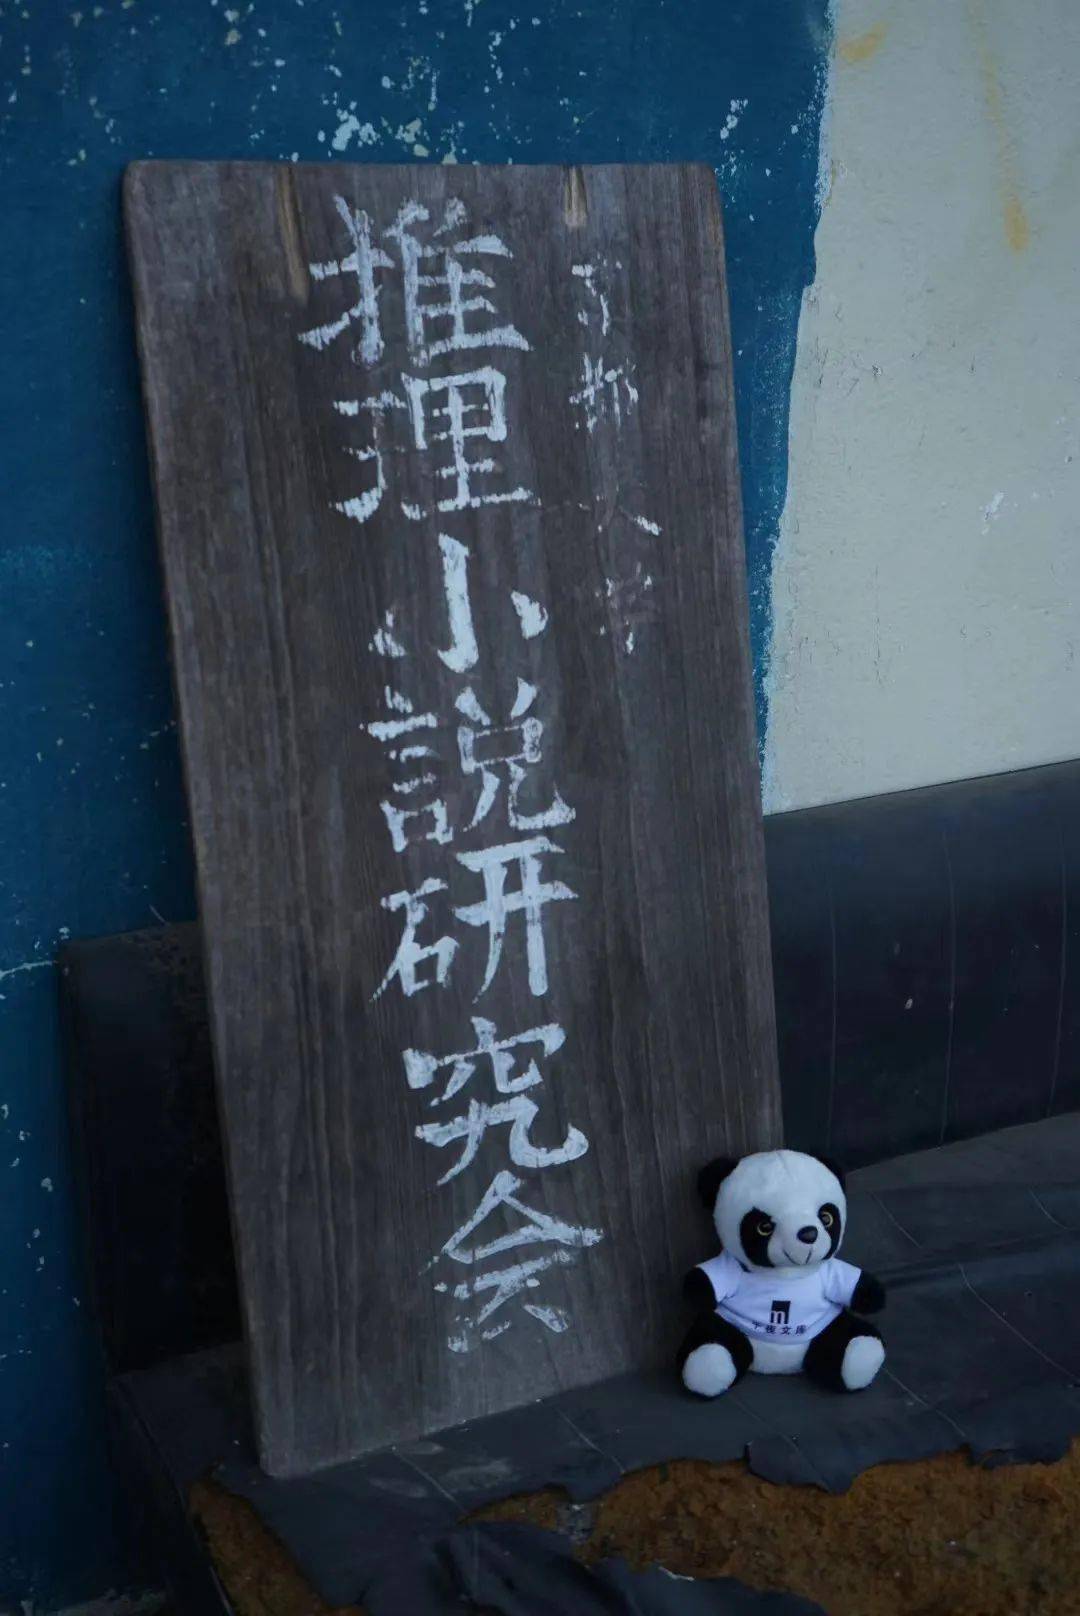 京都大学
推理小説研究会
m
午夜文库